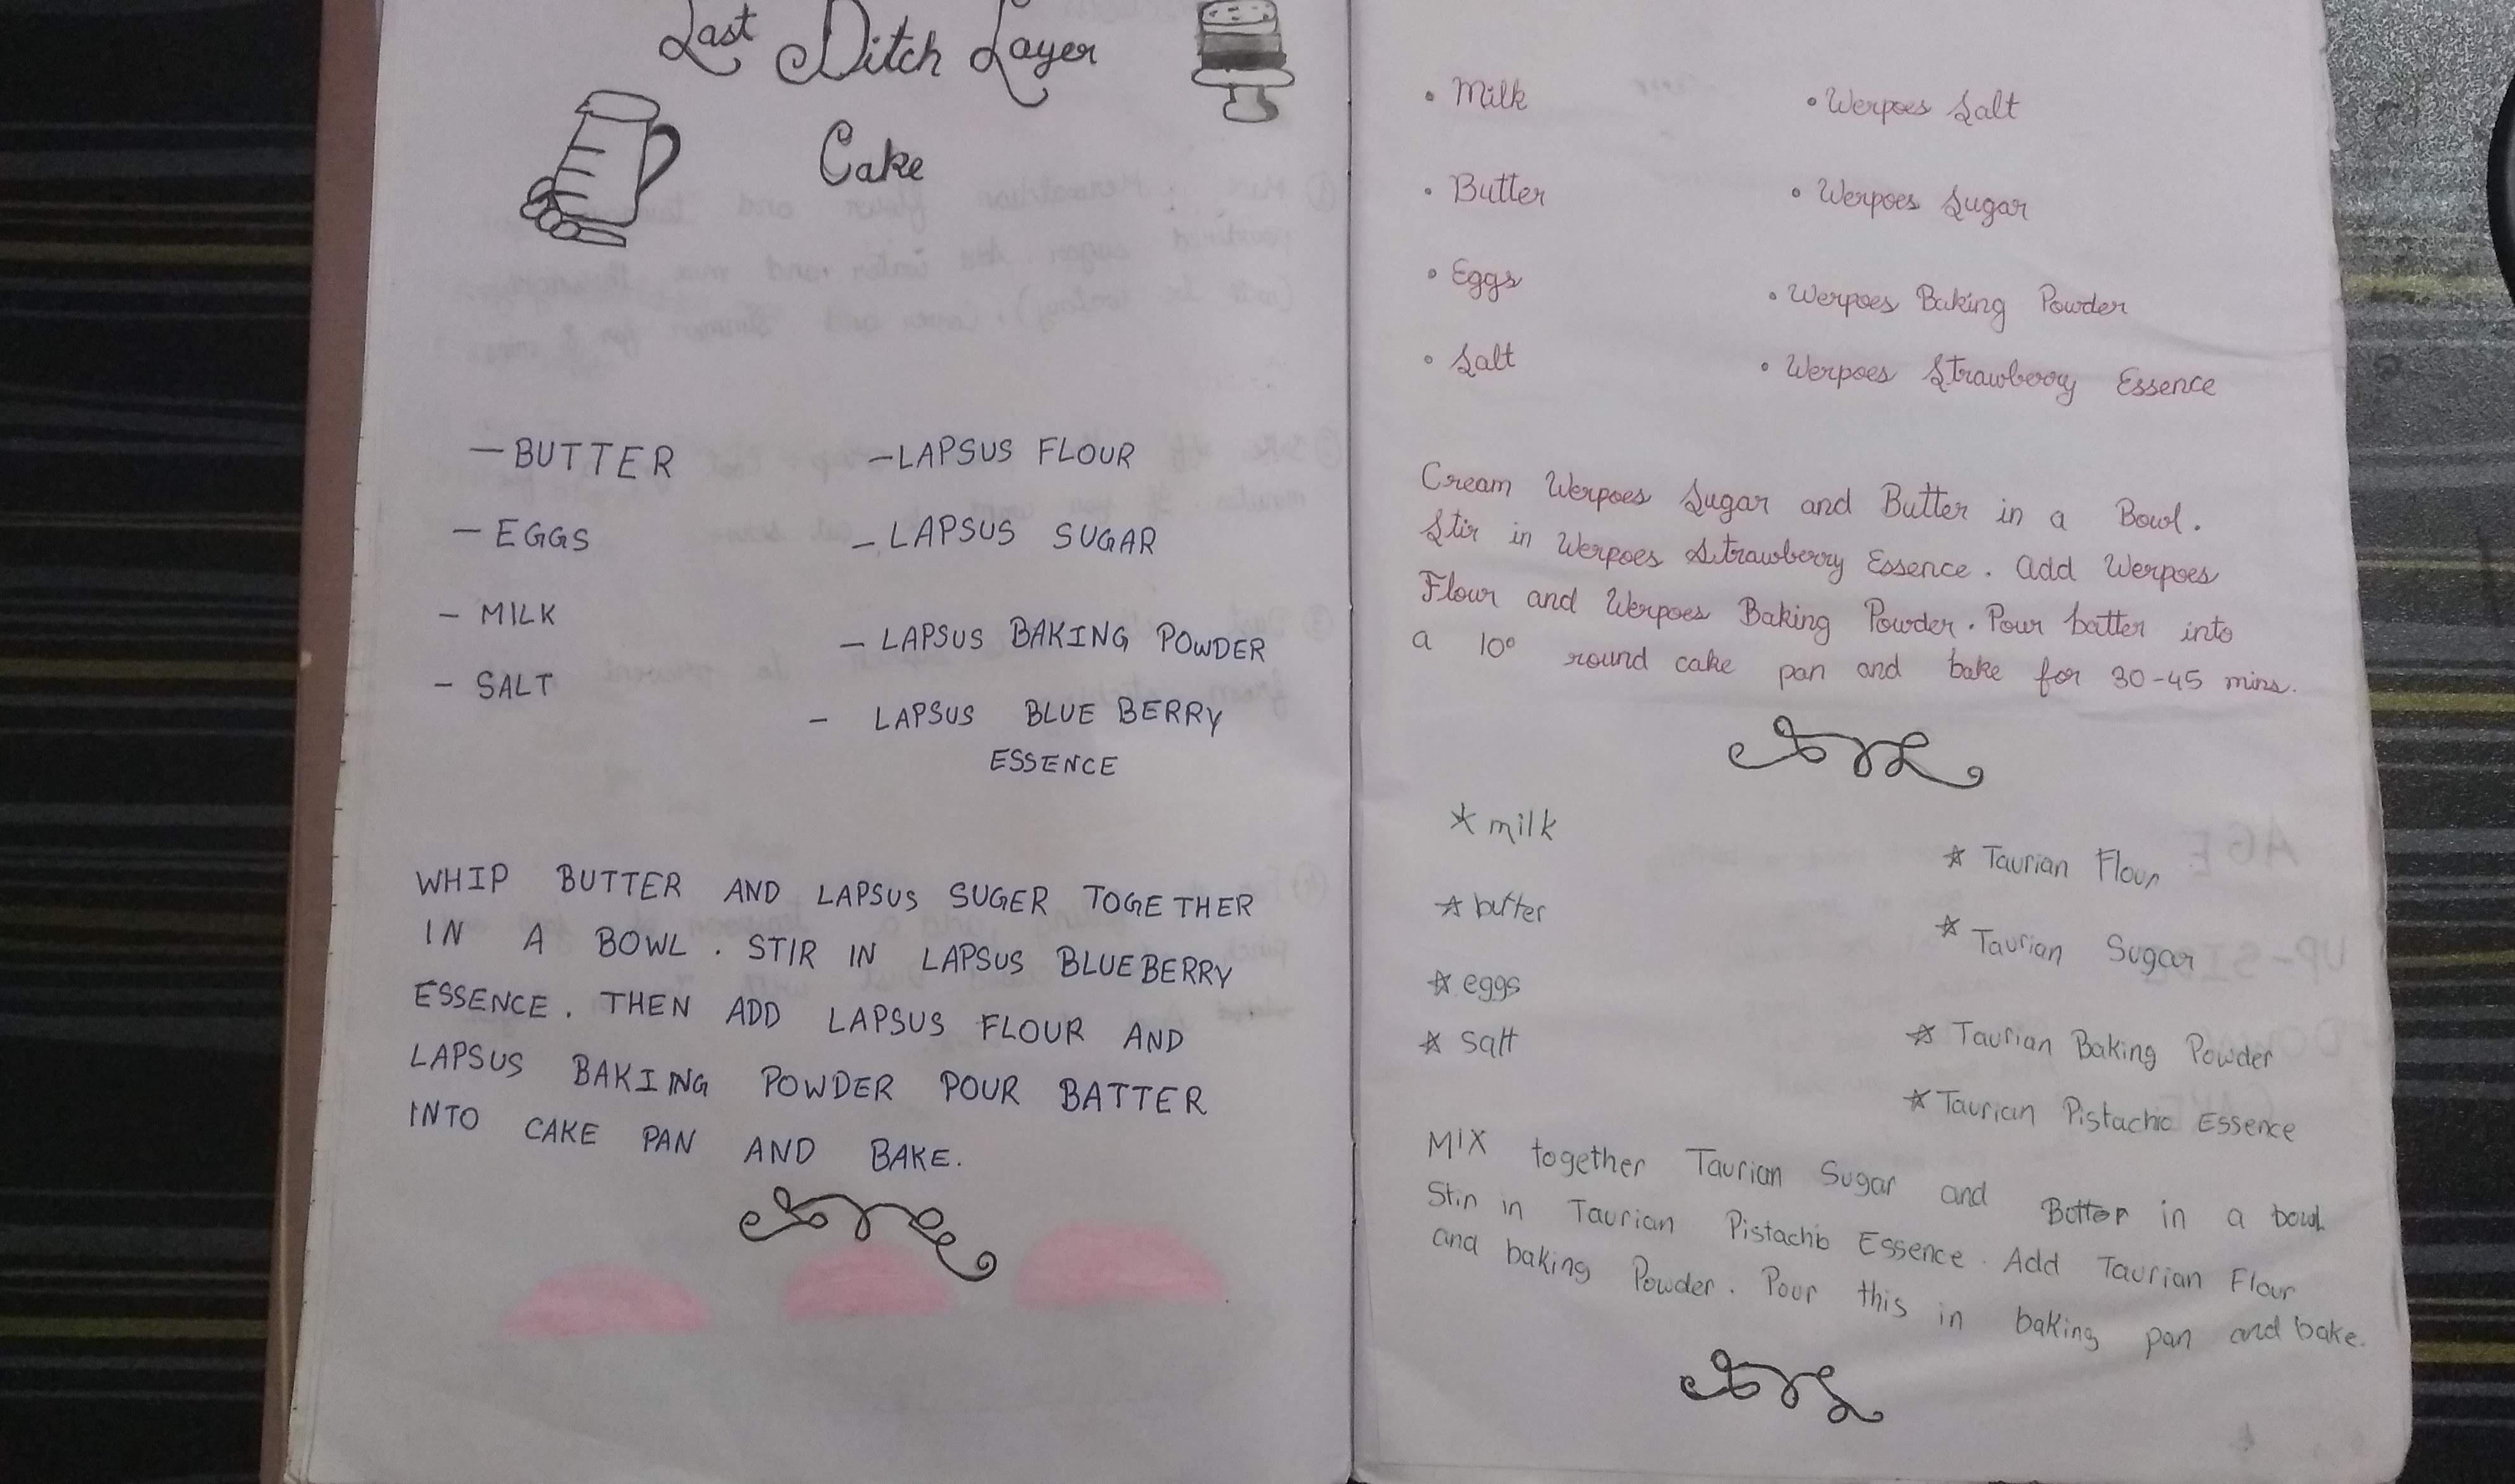 Last Ditch Layer
Cake
— BUTTER
— EGGS
— MILK
— SALT
— LAPSUS FLOUR
— LAPSUS SUGAR
— LAPSUS BAKING POWDER
— LAPSUS BLUE BERRY
ESSENCE
WHIP BUTTER AND LAPSUS SUGER TOGETHER
IN A BOWL. STIR IN LAPSUS BLUEBERRY
ESSENCE. THEN ADD LAPSUS FLOUR AND
LAPSUS BAKING POWDER POUR BATTER
INTO CAKE PAN AND BAKE.
• Milk
• Butter
• Eggs
• Salt
• Werpoes Salt
• Werpoes Sugar
• Werpoes Baking Powder
• Werpoes Strawberry Essence
Cream Werpoes Sugar and Butter in a Bowl.
Stir in Werpoes Strawberry Essence. Add Werpoes
Flour and Werpoes Baking Powder. Pour batter into
a 10° round cake pan and bake for 30-45 mins.
* milk
* butter
* eggs
* salt
* Taurian Flour
* Taurian Sugar
* Taurian Baking Powder
* Taurian Pistachio Essence
Mix together Taurian Sugar and Butter in a bowl
Stir in Taurian Pistachio Essence. Add Taurian Flour
and baking Powder. Pour this in baking pan and bake.